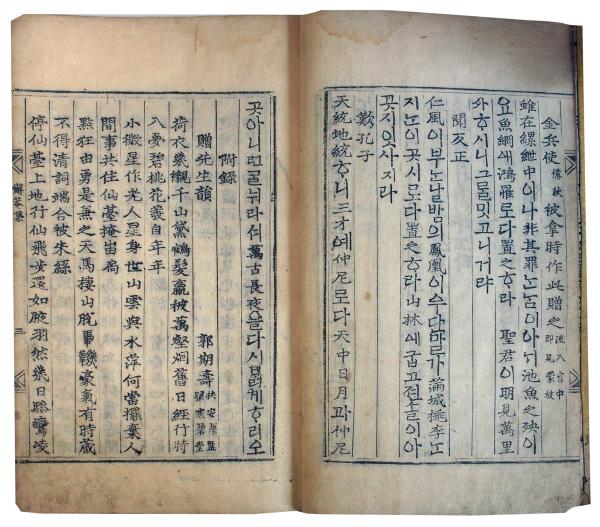 金兵使 俊秋 被拿時作此贈之 流入宮中 即見蒙放
雖在縲絏中이나非其罪ᄂᆞᆫ눔이아닌池魚之殃이
요魚網에鴻罹로다置之ᄒᆞ라 聖君이明見萬里
外ᄒᆞ시니그믈밋고니거랴
聞反正
仁風이부ᄂᆞᆫ날밤의鳳凰이우다마ᄂᆞᆫ가滿城桃李ᄂᆞᆫ
지ᄂᆞ이곳이로다置之ᄒᆞ라山林에굽고젼눔이야
곳지잇사지라
歎孔子
天統地統ᄒᆞ니三才예仲尼로다天中日月과仲尼
곳아니런들뉘라셔萬古長夜을다시ᄇᆞᆰ게ᄒᆞ리오
附錄
贈先生韻 郭期壽 扶安縣監 號寒碧堂
荷衣幾襯千山鶴髮羸被萬壑烟舊日經行時
入夢碧桃花發自年年
小微星作老人星身世山雲與水萍何當擺棄人
間事共住仙臺掩岫扃
點狂由勇是無之天馬棲山脫馽鞿豪氣有時藏
不得清詞端合被朱絲
停仙臺上地行仙飛步還如腋羽然幾日驂鸞凌
三